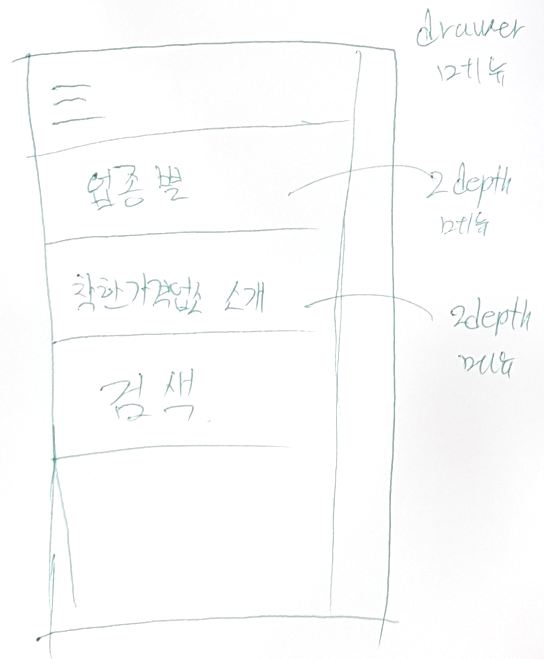 drawer
메뉴
업종별
2depth
메뉴
착한가격업소 소개
2depth
메뉴
검색